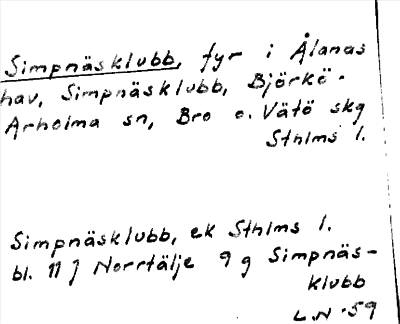 Simpnäsklubb, fyr i Ålands
hav, Simpnäsklubb, Björkö-
Arholma sn, Bro o. Vätö skg
Sthlms l.
Simpnäsklubb, ek Sthlms l.
bl. 11 J Norrtälje 9 g Simpnäs-
klubb
L.N -59